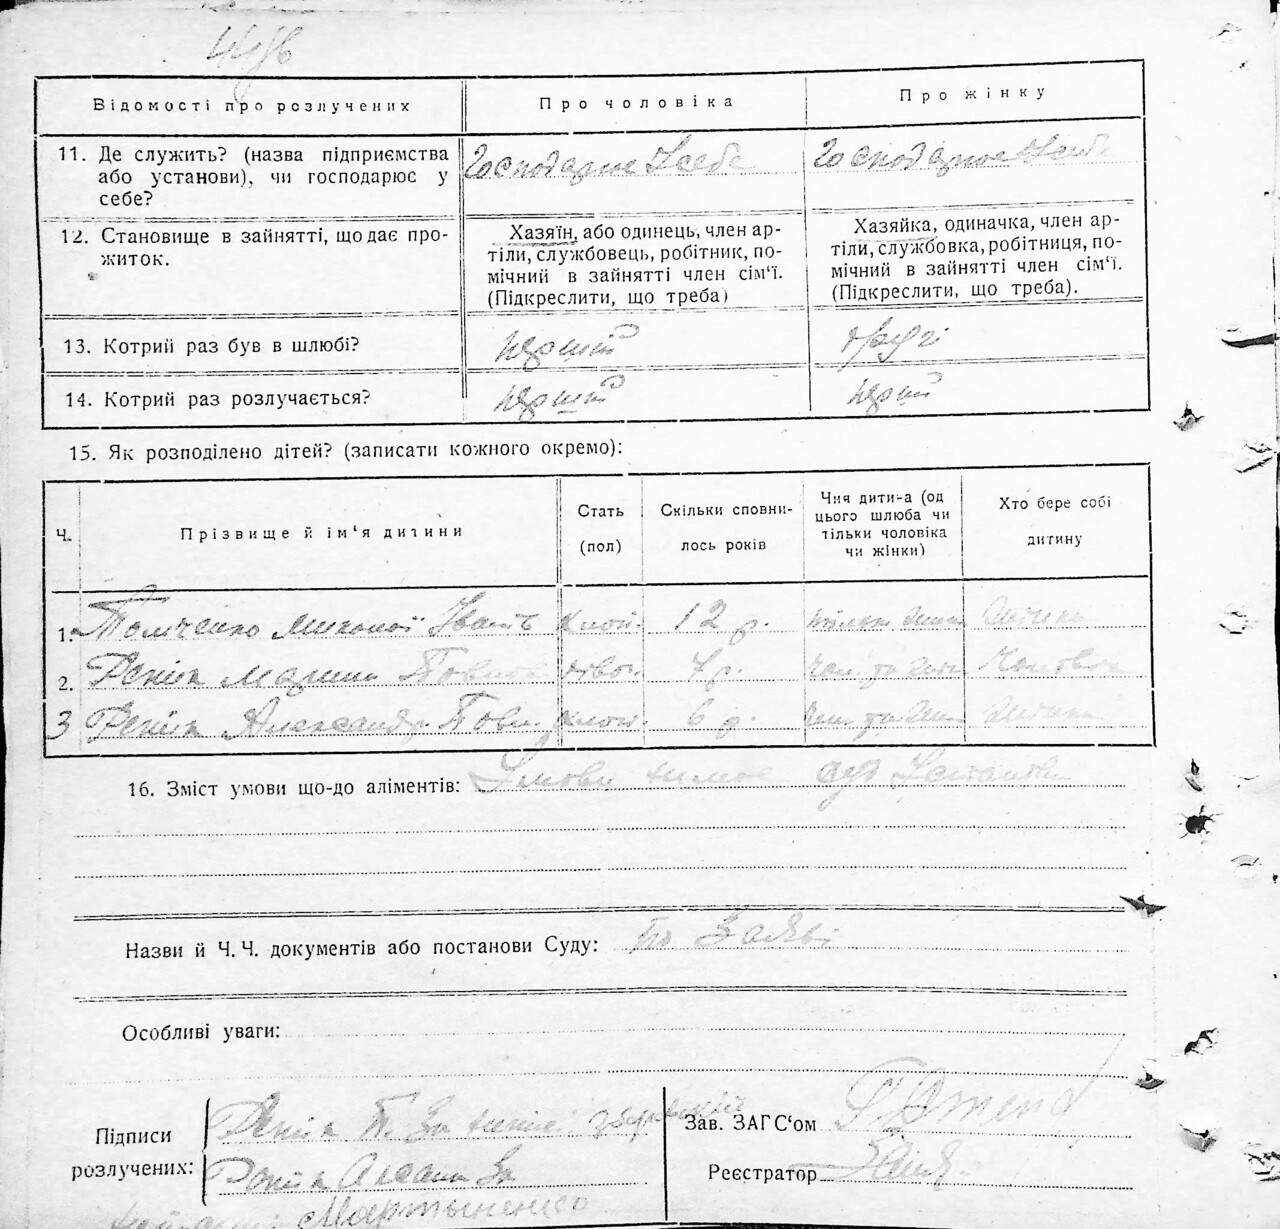 Відомості про розлучених
Про чоловіка
Про жінку
11. Де служить? (назва підприємства
або установи), чи господарює у
себе?
Господарює У себе
Господарює У себе
12. Становище в зайнятті, що дає про-
житок.
Хазяїн, або одинець, член ар-
тіли, службовець, робітник, по-
мічний в зайнятті член сім‘ї.
(Підкреслити, що треба)
Хазяйка, одиначка, член ар-
тіли, службовка, робітниця, по-
мічний в зайнятті член сім‘ї.
(Підкреслити, що треба).
13. Котрий раз був в шлюбі?
перший
другі
14. Котрий раз розлучається?
перший
15. Як розподілено дітей? (записати кожного окремо):
Ч.
Прізвище й ім‘я дитини
Стать
(пол)
Скільки сповни-
лось років
Чия дити-а (од
цього шлюба чи
тільки чоловіка
чи жінки)
Хто бере собі
дитину
1. Томченко хлоп. 12 р.
2. 4 р.
3 Александр Павл. хлоп. 6 р.
16. Зміст умови що-до аліментів: Умови
Назви й Ч. Ч. документів або постанови Суду: по Заяві
Особливі уваги:
Підписи
розлучених:
Зав. ЗАГС‘ом
Реєстратор
Мартыненко